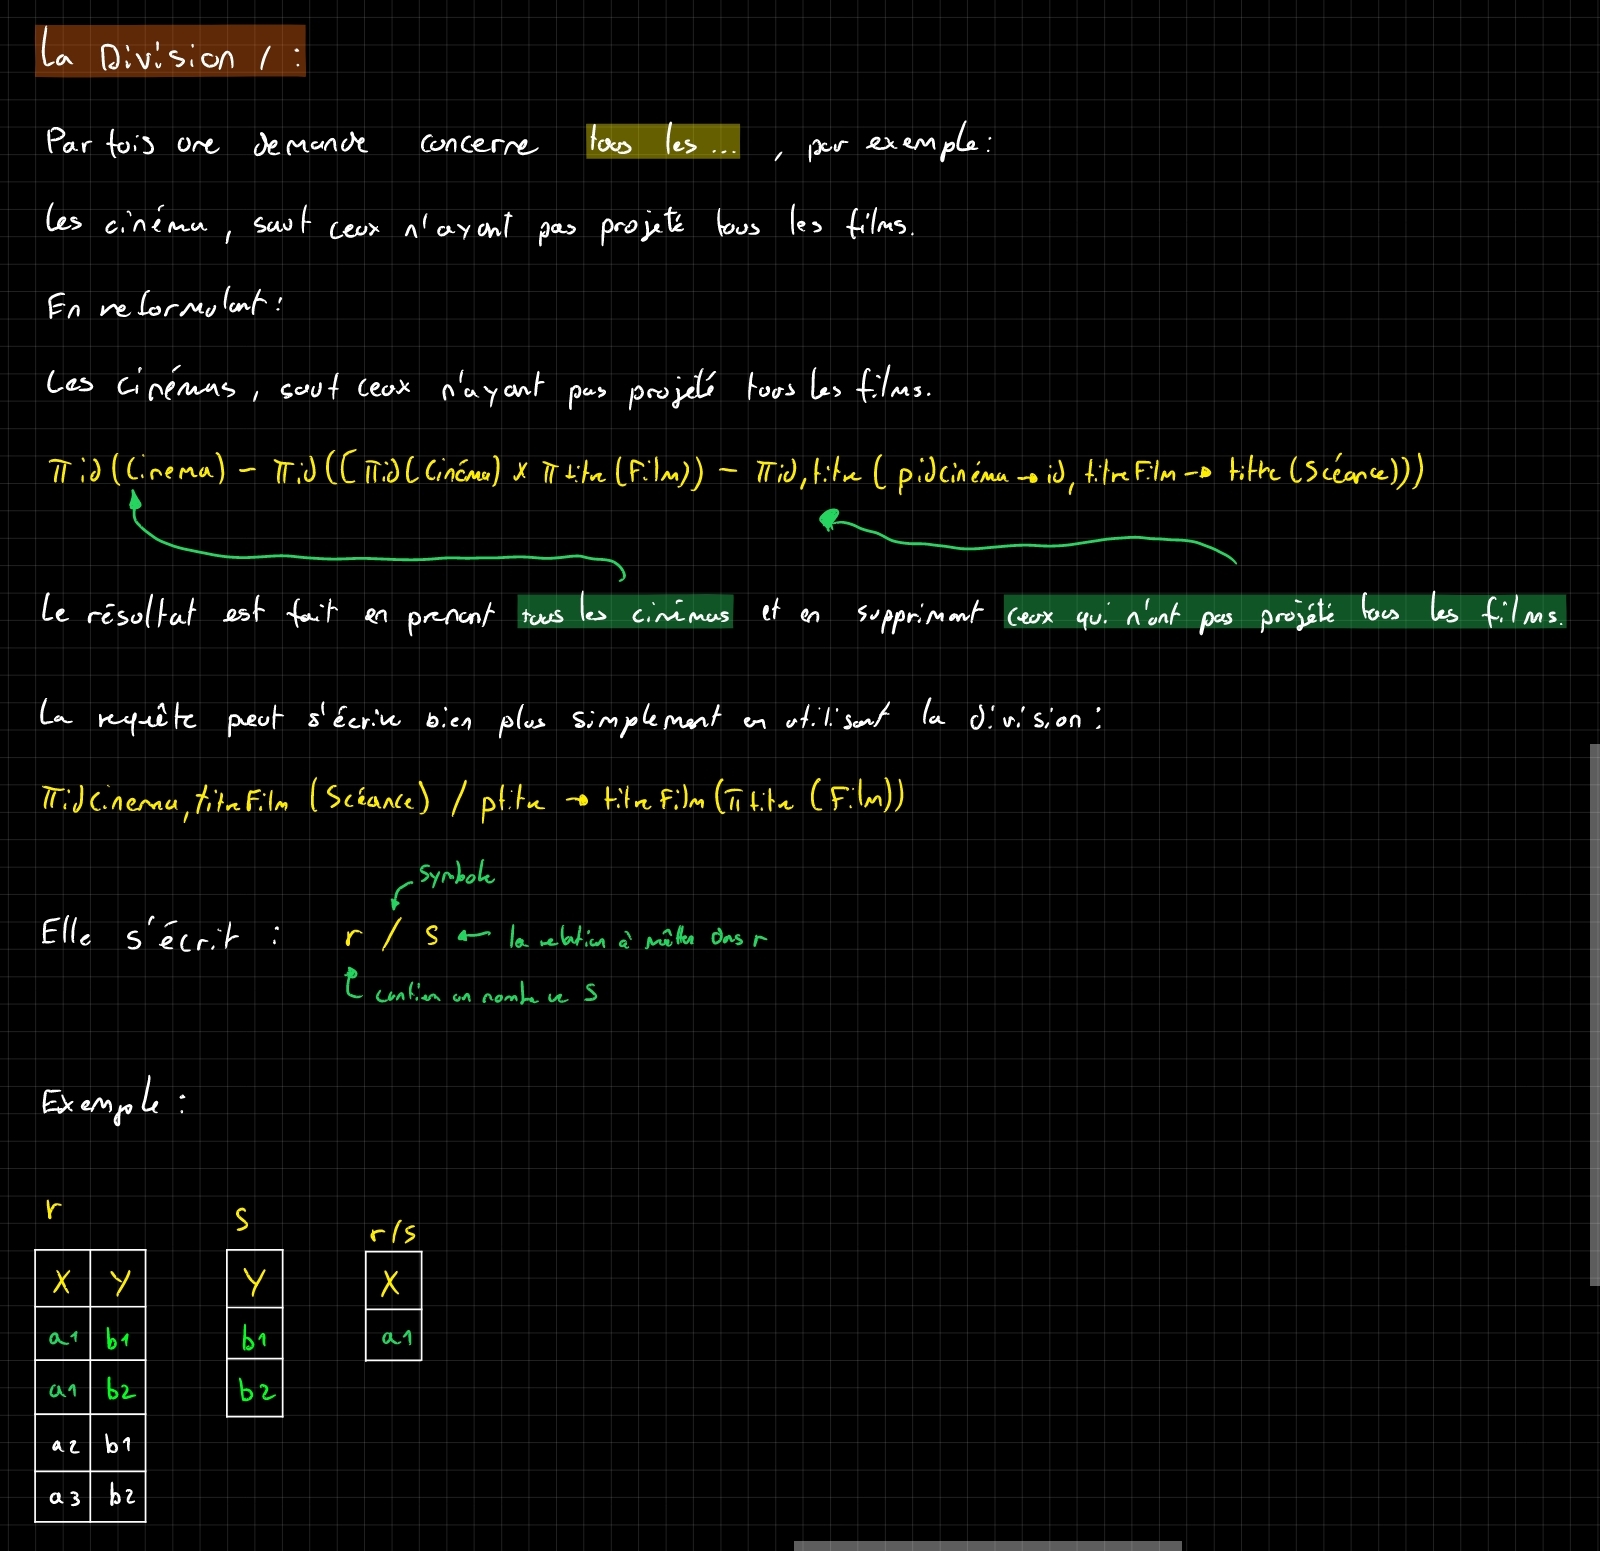 La Division / :
Parfois une demande concerne tous les... , par exemple :
Les cinéma, sauf ceux n'ayant pas projeté tous les films.
En reformulant :
Les cinémas, sauf ceux n'ayant pas projeté tous les films.
πid(Cinema) - πid((πid(Cinéma) x πtitre(Film)) - πid,titre(ρidCinéma→id, titreFilm→titre(Scéance)))
Le résultat est fait en prenant tous les cinémas et en supprimant ceux qui n'ont pas projété tous les films.
La requête peut s'écrire bien plus simplement en utilisant la division :
πidCinema,titreFilm (Scéance) / ρtitre → titreFilm(πtitre (Film))
symbole
Elle s'écrit : r / s ← la relation à mettre dans r
contien un nombre de S
Exemple :
r s r/s
X Y Y X
a1 b1 b1 a1
a1 b2 b2
a2 b1
a3 b2